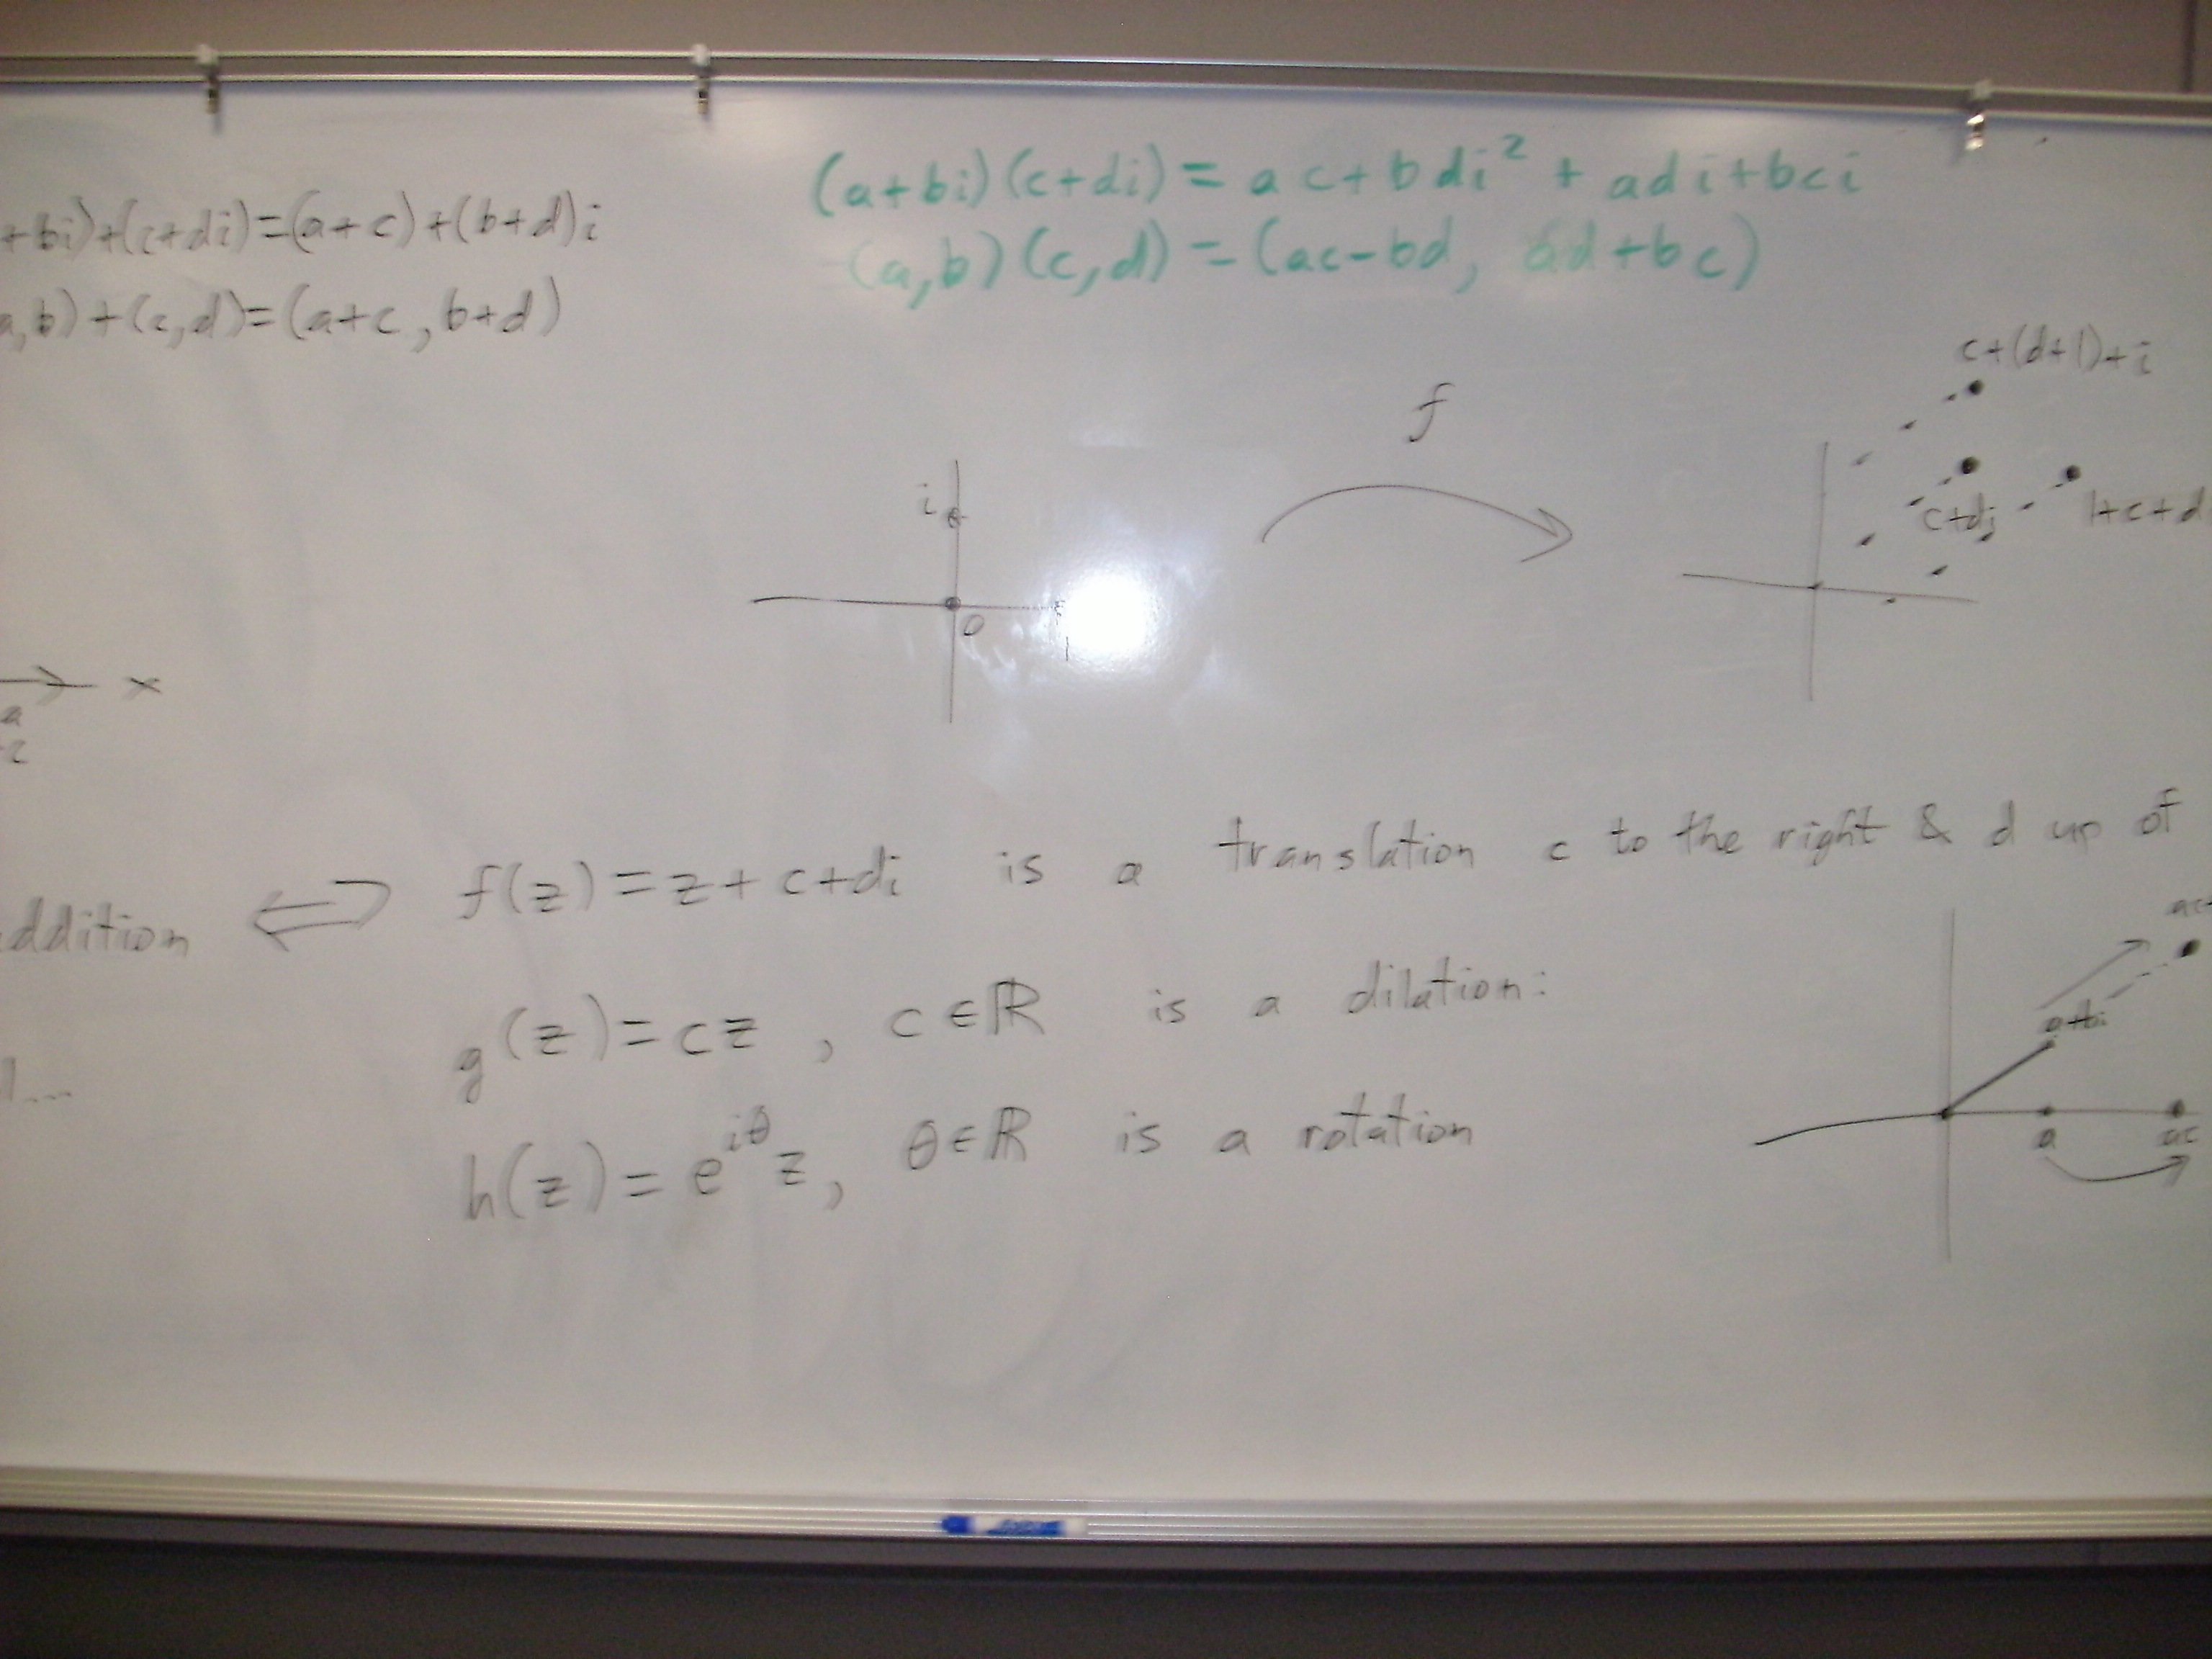 +bi)+(c+di)=(a+c)+(b+d)i
a,b)+(c,d)=(a+c, b+d)
(a+bi)(c+di) = ac+bdi² + adi+bci
(a,b)(c,d) = (ac-bd, ad+bc)
i
0
1
f
c+(d+1)+i
c+di
1+c+d
x
a
c
ddition ⟺ f(z)=z+c+di is a translation c to the right & d up of
g(z)=cz, c∈ℝ is a dilation:
h(z)=e^{iθ}z, θ∈ℝ is a rotation
ac+
a+bi
a
ac